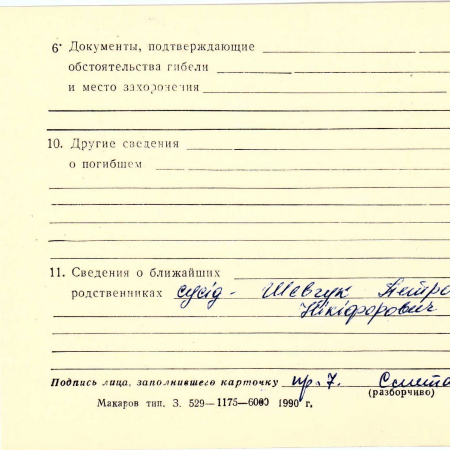 6· Документы, подтверждающие
обстоятельства гибели
и место захоронения
10. Другие сведения
о погибшем
11. Сведения о ближайших
родственниках сусід - Шевчук Петро
Нікіфорович
Подпись лица, заполнившего карточку пр. 7.
(разборчиво)
Макаров тип. З. 529—1175—6000 1990 г.